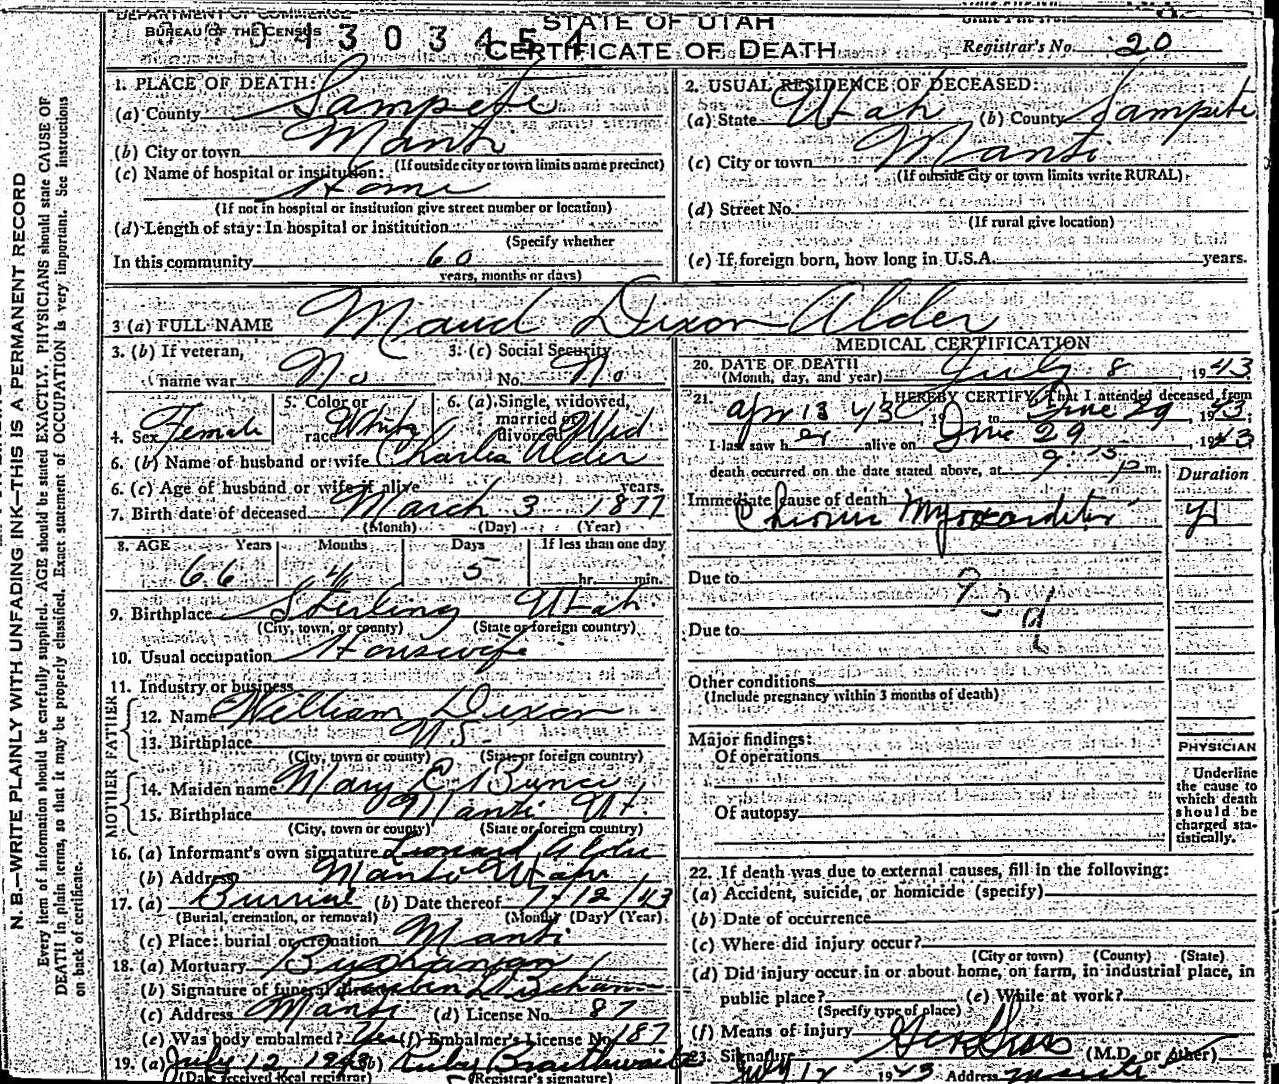 DEPARTMENT OF COMMERCE
BUREAU OF THE CENSUS
STATE OF UTAH
CERTIFICATE OF DEATH
Registrar's No. 20
1. PLACE OF DEATH:
(a) County Sanpete
(b) City or town Manti
(If outside city or town limits name precinct)
(c) Name of hospital or institution:
Home
(If not in hospital or institution give street number or location)
(d) Length of stay: In hospital or institution
(Specify whether
In this community 60
years, months or days)
2. USUAL RESIDENCE OF DECEASED:
(a) State Utah (b) County Sanpete
(c) City or town Manti
(If outside city or town limits write RURAL)
(d) Street No.
(If rural give location)
(e) If foreign born, how long in U.S.A. years.
3 (a) FULL NAME Maud Dixon Alder
3. (b) If veteran, name war No
3. (c) Social Security No. No
4. Sex Female
5. Color or race White
6. (a) Single, widowed, married or divorced Wid
6. (b) Name of husband or wife Charles Alder
6. (c) Age of husband or wife if alive years.
7. Birth date of deceased March 3 1877
(Month) (Day) (Year)
8. AGE Years Months Days If less than one day
66 4 5 hr. min.
9. Birthplace Sterling Utah
(City, town, or county) (State or foreign country)
10. Usual occupation Housewife
11. Industry or business
FATHER
12. Name William Dixon
13. Birthplace
(City, town or county) (State or foreign country)
MOTHER
14. Maiden name Mary E Bunce
15. Birthplace Manti Ut.
(City, town or county) (State or foreign country)
16. (a) Informant's own signature Leonard Alder
(b) Address Manti Utah
17. (a) Burial (b) Date thereof 7/12/43
(Burial, cremation, or removal) (Month) (Day) (Year)
(c) Place: burial or cremation Manti
18. (a) Mortuary Buchanan
(b) Signature of funeral director
(c) Address Manti (d) License No. 87
(e) Was body embalmed? Yes (f) Embalmer's License No. 187
19. (a) July 12 1943 (b) Ruby Braithwaite
(Date received local registrar) (Registrar's signature)
MEDICAL CERTIFICATION
20. DATE OF DEATH July 8, 1943
(Month, day, and year)
21. I HEREBY CERTIFY, That I attended deceased from
Apr 13 43, to June 29 1943;
I last saw her alive on June 29, 1943
death occurred on the date stated above, at 9:15 p m.
Duration
Immediate cause of death
Chronic Myocarditis yr
Due to
Due to
Other conditions
(Include pregnancy within 3 months of death)
Major findings:
Of operations
Of autopsy
PHYSICIAN
Underline
the cause to
which death
should be
charged sta-
tistically.
22. If death was due to external causes, fill in the following:
(a) Accident, suicide, or homicide (specify)
(b) Date of occurrence
(c) Where did injury occur?
(City or town) (County) (State)
(d) Did injury occur in or about home, on farm, in industrial place, in
public place? (e) While at work?
(Specify type of place)
(f) Means of injury
23. Signature (M.D. or other)
July 12 1943 Address Manti
N. B.—WRITE PLAINLY WITH UNFADING INK—THIS IS A PERMANENT RECORD
Every item of information should be carefully supplied. AGE should be stated EXACTLY. PHYSICIANS should state CAUSE OF
DEATH in plain terms, so that it may be properly classified. Exact statement of OCCUPATION is very important. See instructions
on back of certificate.